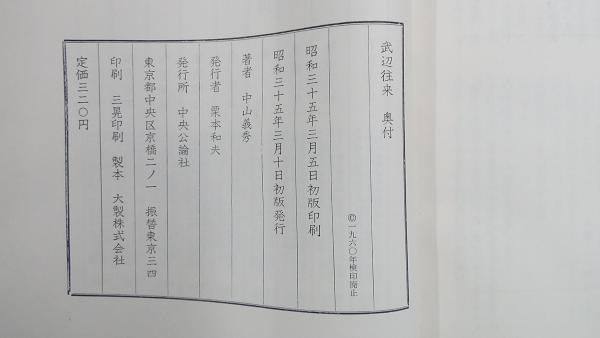 武辺往来 奥付
©一九六〇年検印廃止
昭和三十五年三月五日初版印刷
昭和三十五年三月十日初版発行
著者 中山義秀
発行者 栗本和夫
発行所 中央公論社
東京都中央区京橋二ノ一 振替東京三四
印刷 三晃印刷 製本 大製株式会社
定価三二〇円